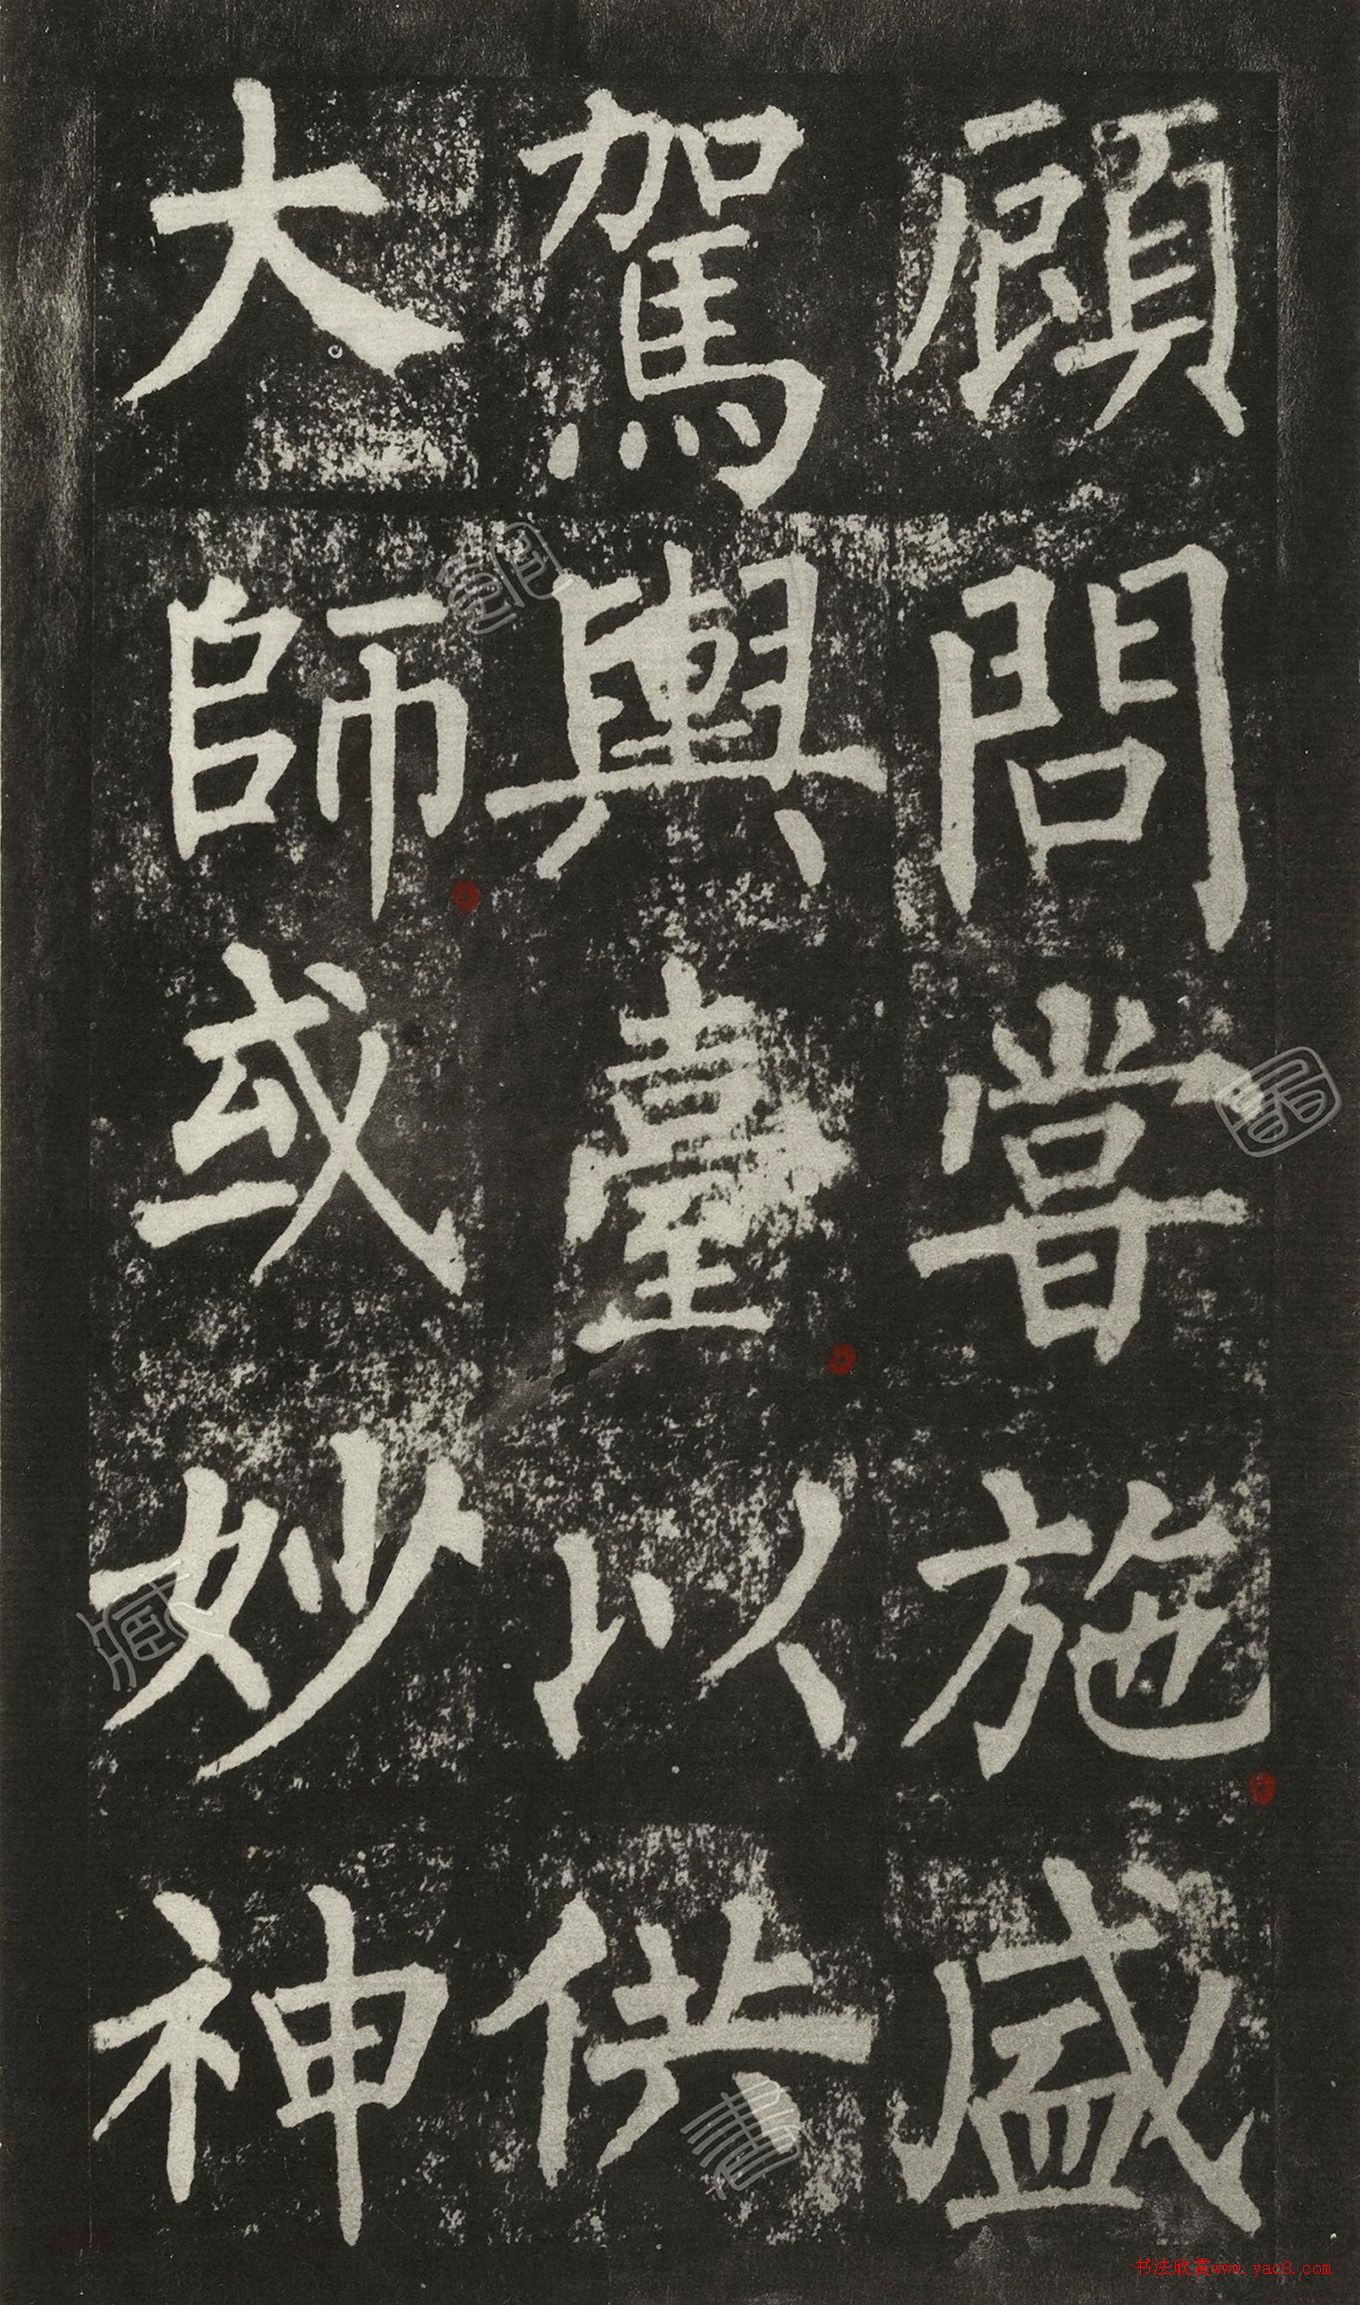 顧問甞施盛
駕輿臺以供
大師或妙神
书法欣赏www.yac8.com